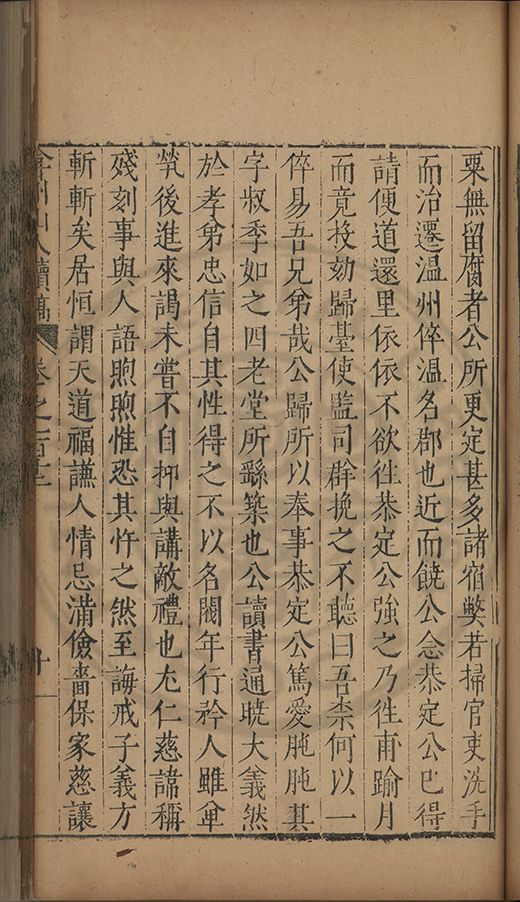 粟無留腐者公所更定甚多諸宿獘若掃官吏洗手
而治遷温州倅温名郡也近而饒公念恭定公已得
請便道還里依依不欲徃恭定公強之乃徃甫踰月
而竟投劾歸臺使監司群挽之不聽曰吾柰何以一
倅易吾兄弟哉公歸所以奉事恭定公篤愛肫肫其
字叔季如之四老堂所繇築也公讀書通曉大義然
於孝弟忠信自其性得之不以名閥年行矜人雖單
煢後進來謁未嘗不自抑與講敵禮也尤仁慈諱稱
殘刻事與人語煦煦惟恐其忤之然至誨戒子義方
斬斬矣居恒謂天道福謙人情忌滿儉嗇保家慈讓
弇州山人續稿 卷之一百十二 十